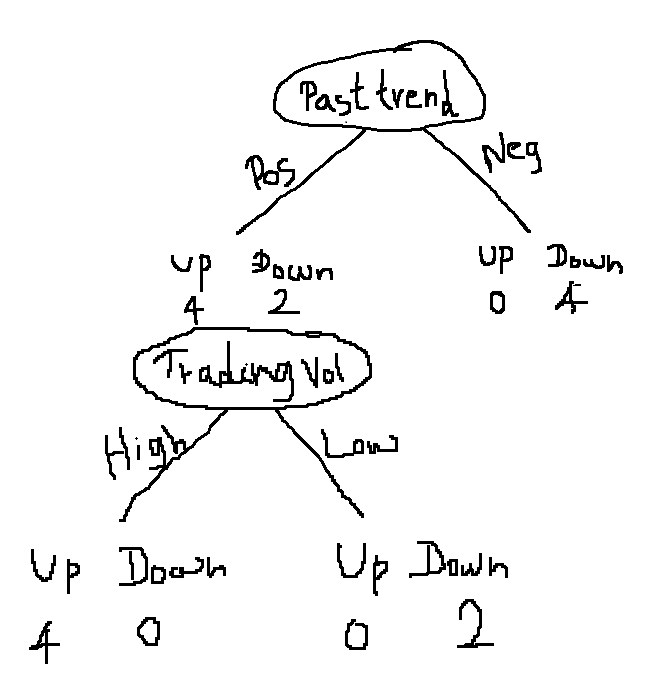 Past trend
Pos Neg
Up Down Up Down
4 2 0 4
Trading Vol
High Low
Up Down Up Down
4 0 0 2